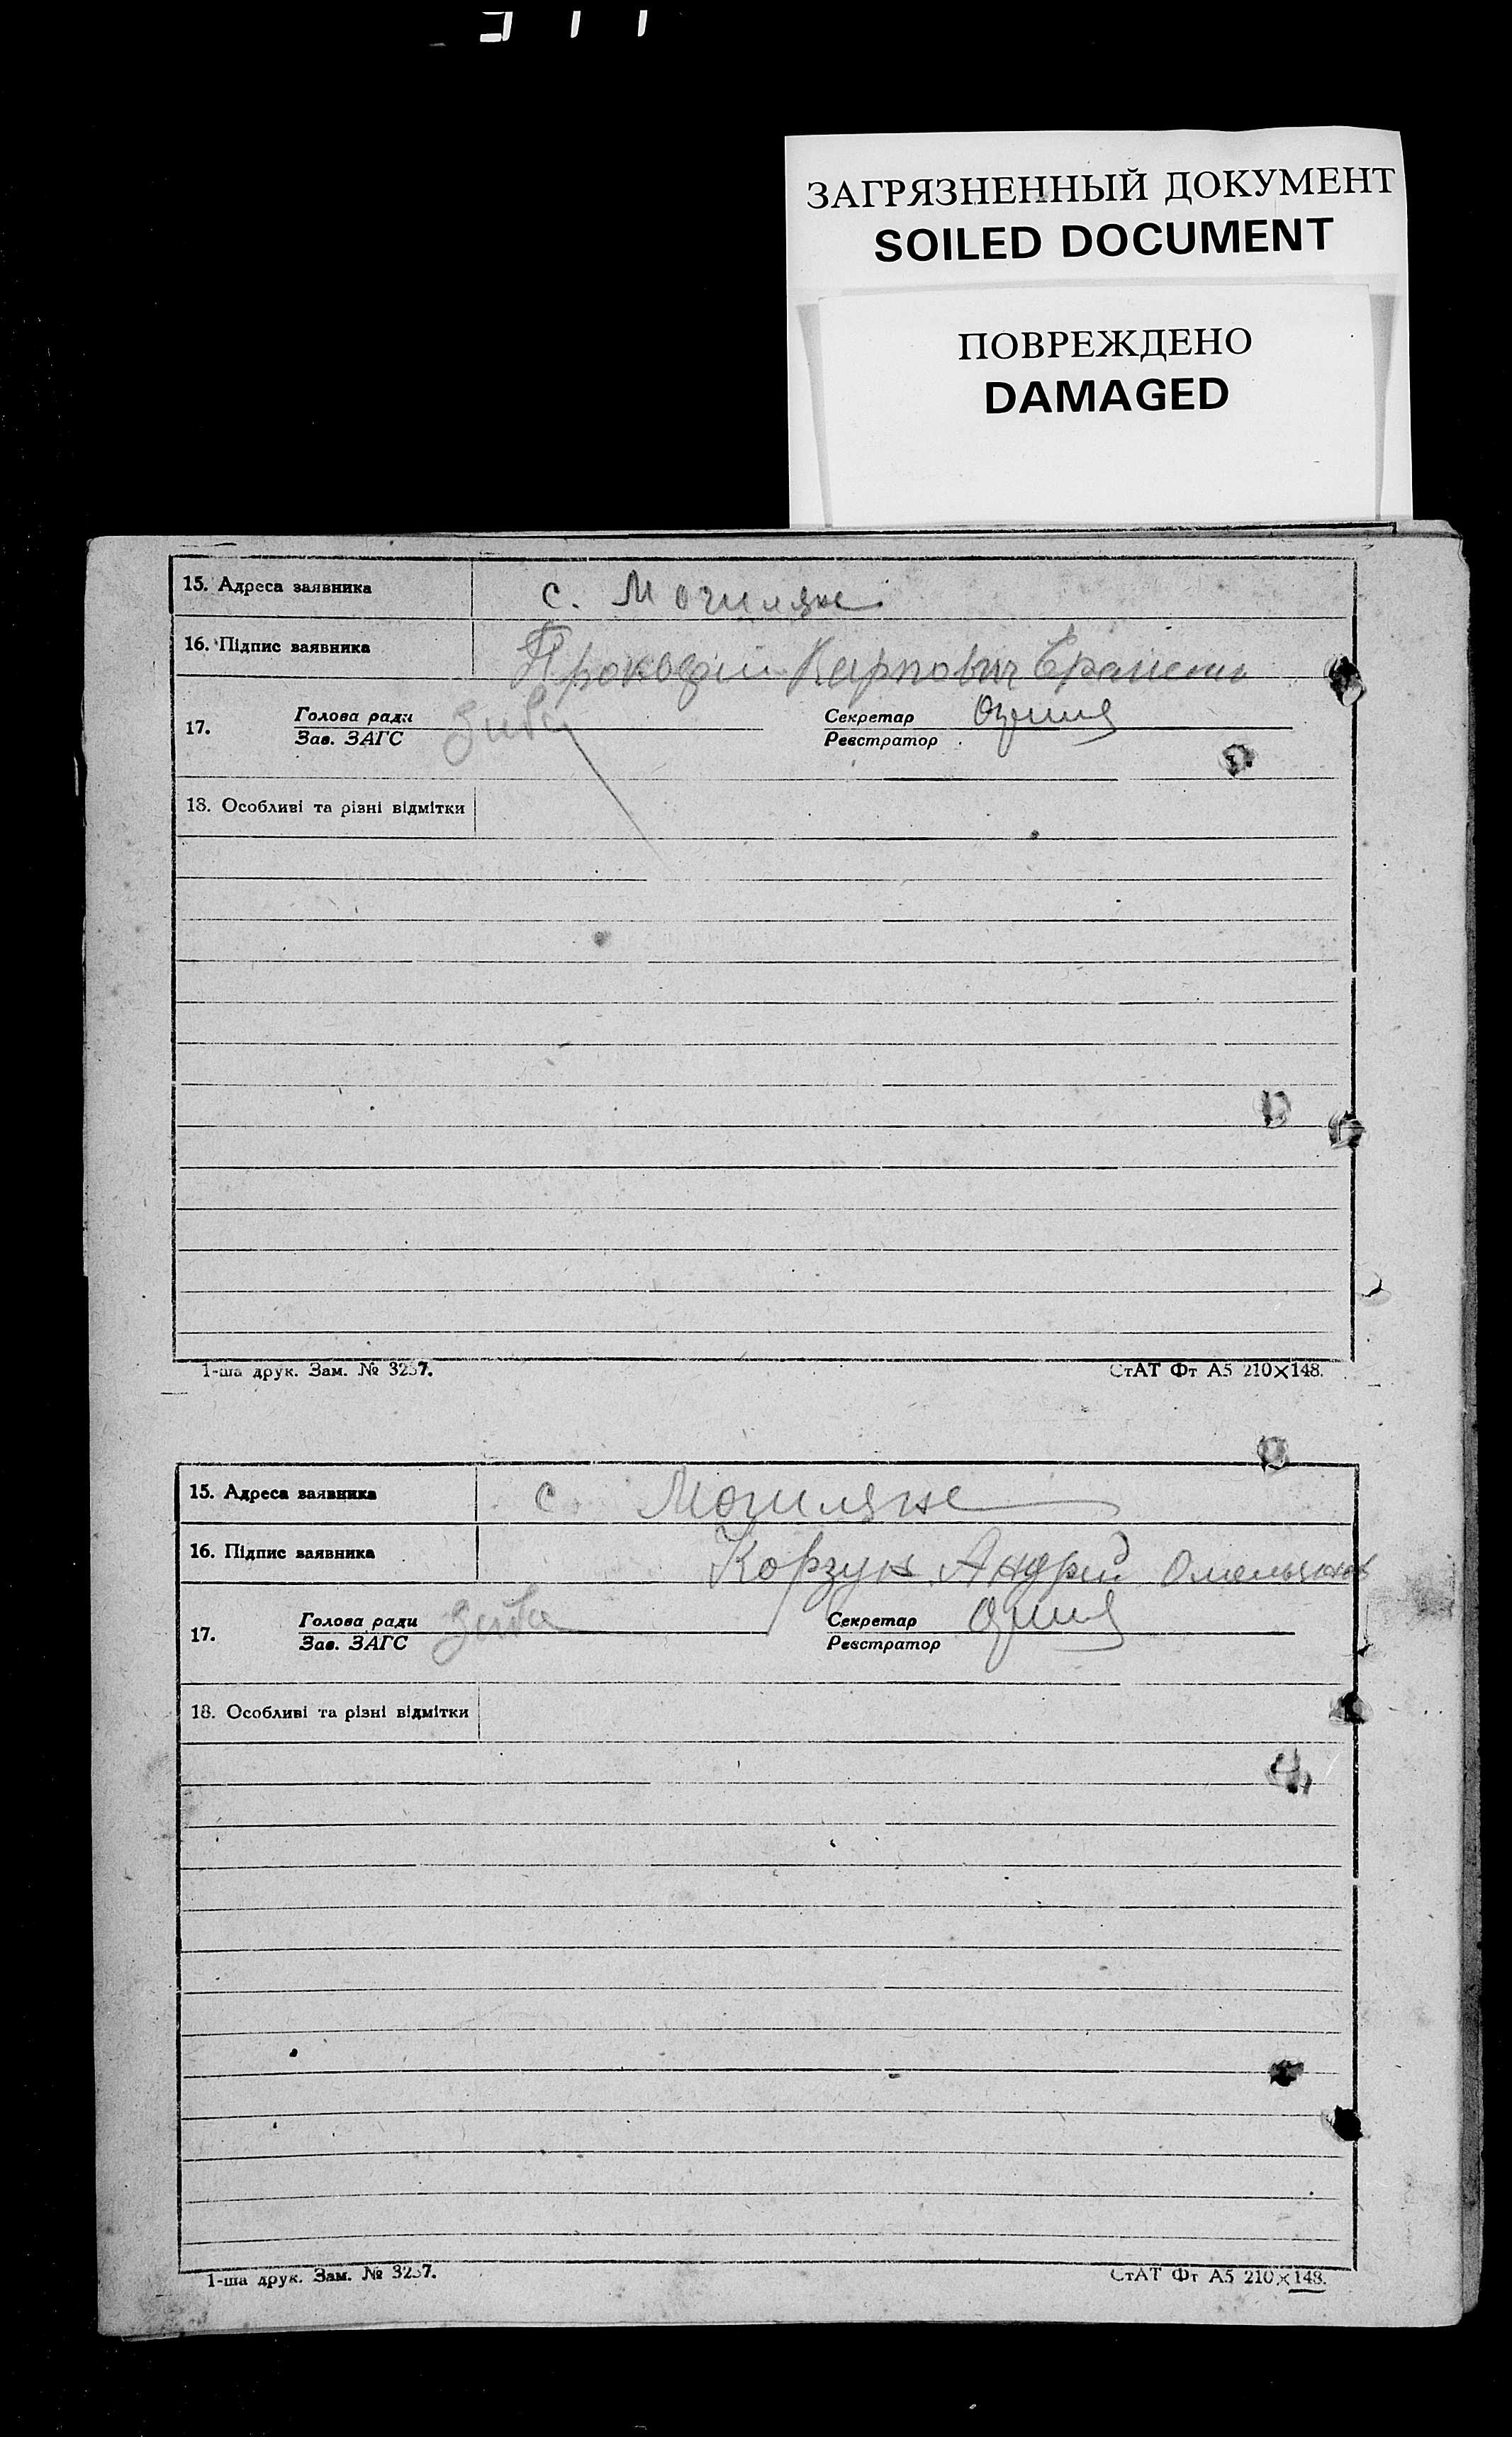 ЗАГРЯЗНЕННЫЙ ДОКУМЕНТ
SOILED DOCUMENT
ПОВРЕЖДЕНО
DAMAGED
15. Адреса заявника с. Могиляне
16. Підпис заявника Прокофий Карпович
17. Голова ради Зиба Секретар
Зав. ЗАГС Реєстратор
18. Особливі та різні відмітки
1-ша друк. Зам. № 3237. СтАТ Фт А5 210×148.
15. Адреса заявника с. Могиляне
16. Підпис заявника Корзун Андрій Омельянов
17. Голова ради Зиба Секретар
Зав. ЗАГС Реєстратор
18. Особливі та різні відмітки
1-ша друк. Зам. № 3237. СтАТ Фт А5 210×148.